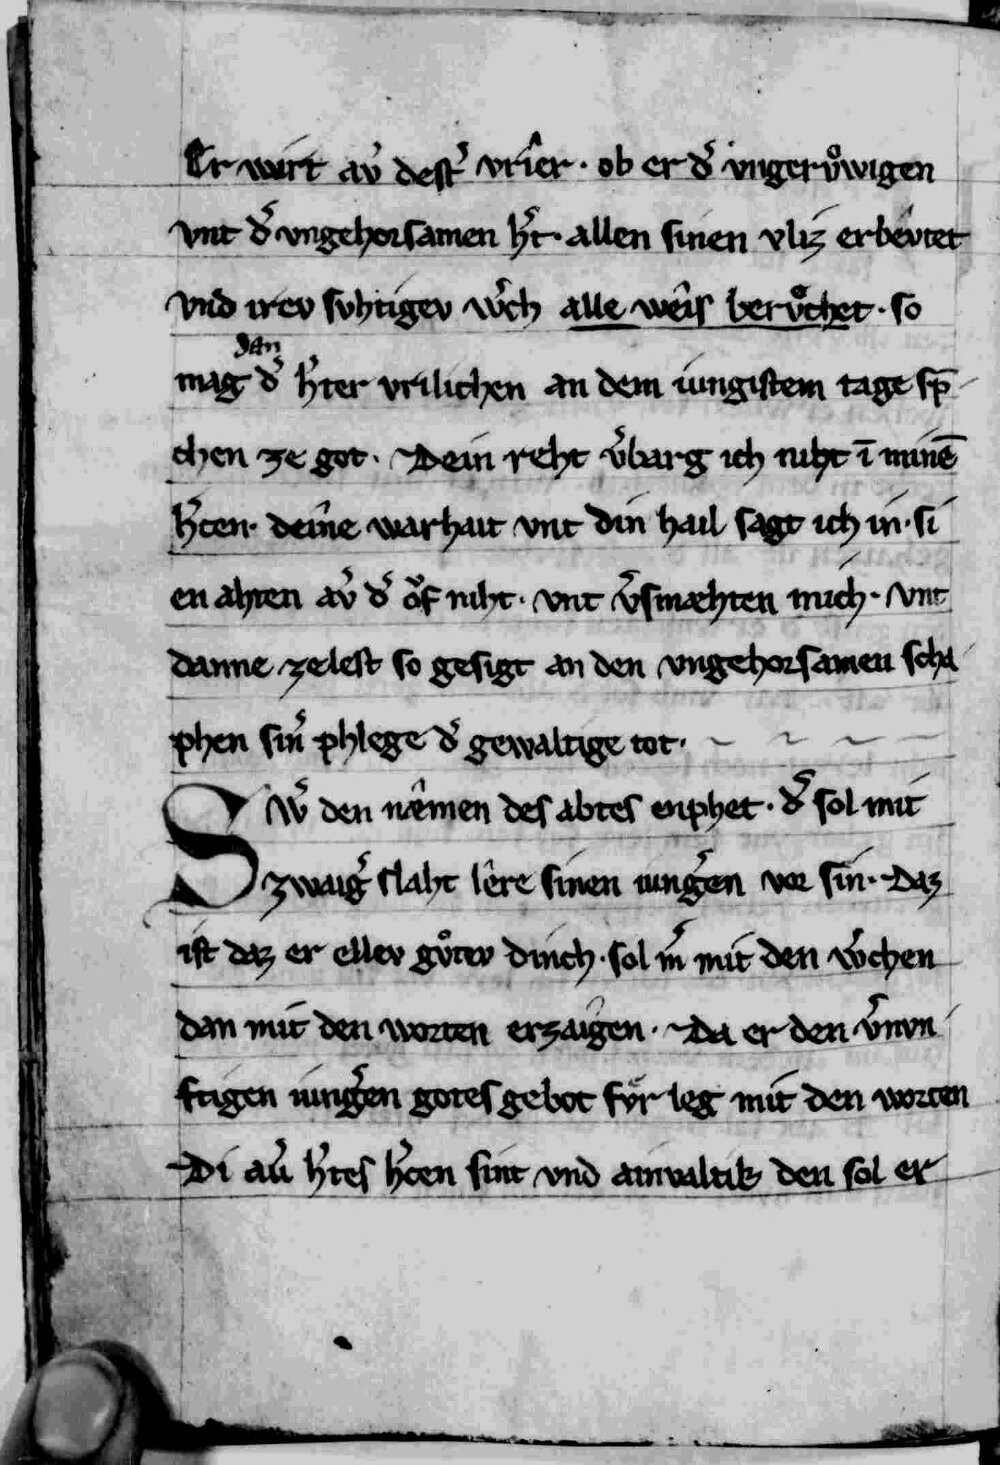 Er wirt av͛ dest͛ vrîer · ob er d͛ vngerv̊wigen
vnt d͛ vngehorsamen h͛t · allen sinen vliz erbevtet
vnd irev svhtigev w͛ch alle weîs berv̊chet · so
dan
mag d͛ h͛ter vrilichen an dem iungistem tage sp̄
chen ze got · Dein reht v͛barg ich niht ī minē
h͛cen · deîne warhait vnt din hail sagt ich in · si
en ahten av͛ d͛ ov͛f niht · vnt v͛smæhten mich · vnt
danne zelest so gesigt an den vngehorsamen scha
phen sin͛ phlege d͛ gewaltige tot ·
SW͛ den næmen des abtes enphet · d͛ sol mit
zwaig͛ slaht lêre sinen iung͛en vor sin · Daz
ist daz er ellev gv̊tev dinch · sol m͛ mit den w͛chen
dan mit den worten erzaigen · Da er den v͛nvn
ftigen iung͛en gotes gebot fv̊r leg mit den worten
Di av͛ h͛tes h͛cen sint vnd ainvaltik den sol er